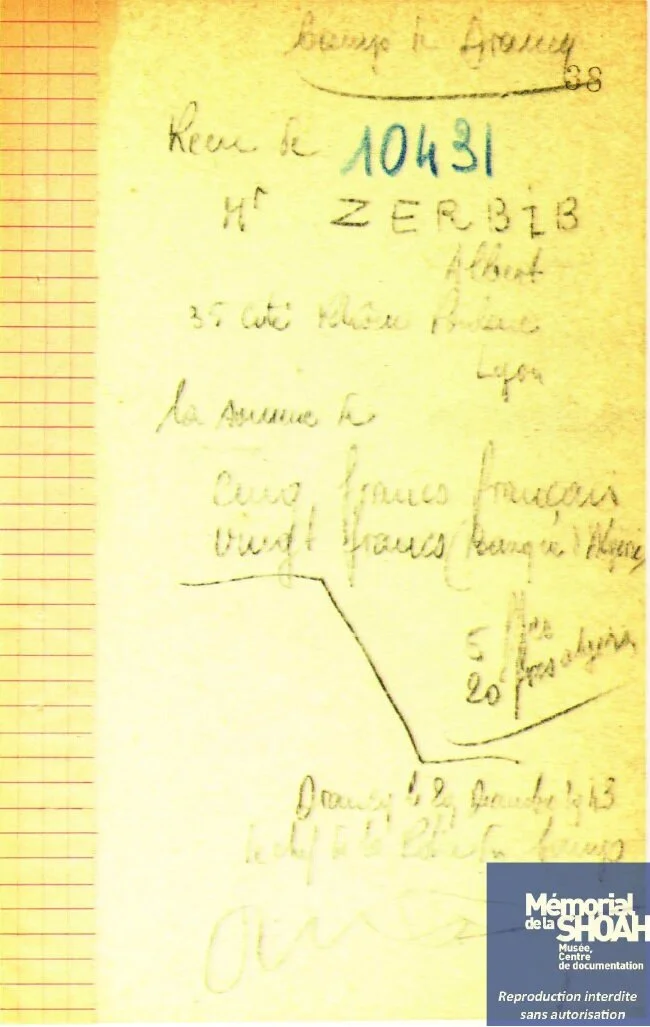 Camp de Drancy
38
Recu de 10431
Mr ZERBIB
Albert
35 Cité Rhône
Lyon
la somme de
cinq francs français
vingt francs (Banque d'Algérie)
5 frcs
20 frcs algériens
Drancy le 29 Décembre 1943
le chef de la Police du Camp
Mémorial
de la SHOAH
Musée,
Centre
de documentation
Reproduction interdite
sans autorisation